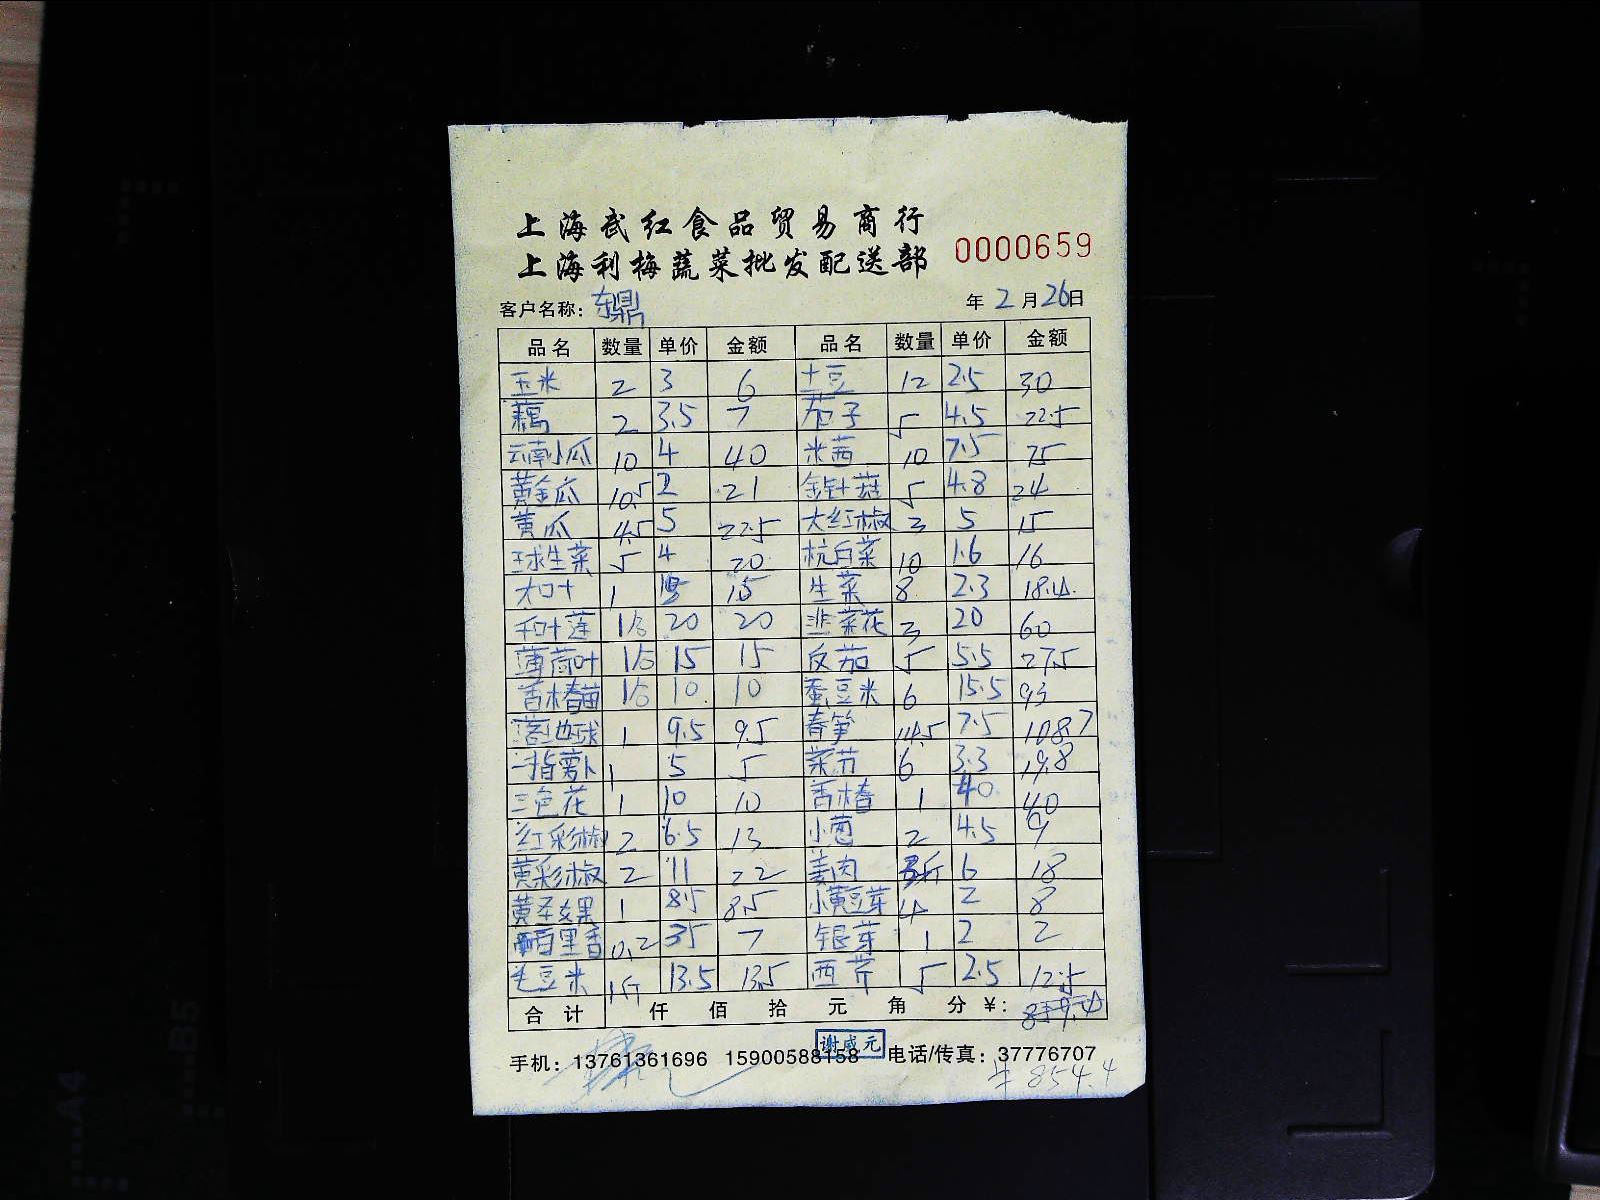 上海武红食品贸易商行
上海利梅蔬菜批发配送部 0000659
客户名称: 东鼎 年 2 月 26 日
品名 数量 单价 金额 品名 数量 单价 金额
玉米 2 3 6 土豆 12 2.5 30
藕 2 3.5 7 茄子 5 4.5 22.5
云南小瓜 10 4 40 米茜 10 7.5 75
黄金瓜 10.5 2 21 金针菇 5 4.8 24
黄瓜 4.5 5 22.5 大红椒 3 5 15
球生菜 5 4 20 杭白菜 10 1.6 16
大叶 1 15 15 生菜 8 2.3 18.4
千叶莲 1/3 20 20 韭菜花 3 20 60
薄荷叶 1/3 15 15 反茄 5 5.5 27.5
香椿苗 1/3 10 10 蚕豆米 6 15.5 93
落地球 1 9.5 9.5 春笋 14.5 7.5 108.7
一指萝卜 1 5 5 菜芥 6 3.3 19.8
三色花 1 10 10 香椿 1 40 40
红彩椒 2 6.5 13 小葱 2 4.5 9
黄彩椒 2 11 22 姜肉 3斤 6 18
黄圣女果 1 8.5 8.5 小黄豆芽 4 2 8
百里香 0.2 35 7 银芽 1 2 2
毛豆米 1斤 13.5 13.5 西芹 5 2.5 12.5
合计 仟 佰 拾 元 角 分 ¥:
谢成元
手机: 13761361696 15900588158 电话/传真: 37776707
¥ 854.4